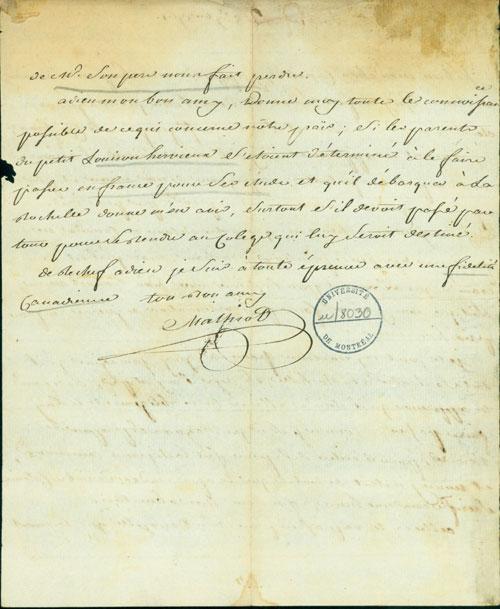 de Mr. Son pere nous fait perdre.
adieu mon bon amy, donne moy toute le connoissance
possible de ce qui concerne nôtre païs; Si les parents
du petit Louison hervieux S'etoient déterminé à le faire
passer en france pour Ses etude et qu'il débarqua à La
Rochelle donne m'en avis, Surtout S'il devoit passé par
tour pour Se rendre au Colege qui luy Seroit destiné.
de Rechef adieu je Suis à toute épreuve avec une fidelité
Canadienne ton bon amy
UNIVERSITÉ
u/8030
DE MONTRÉAL